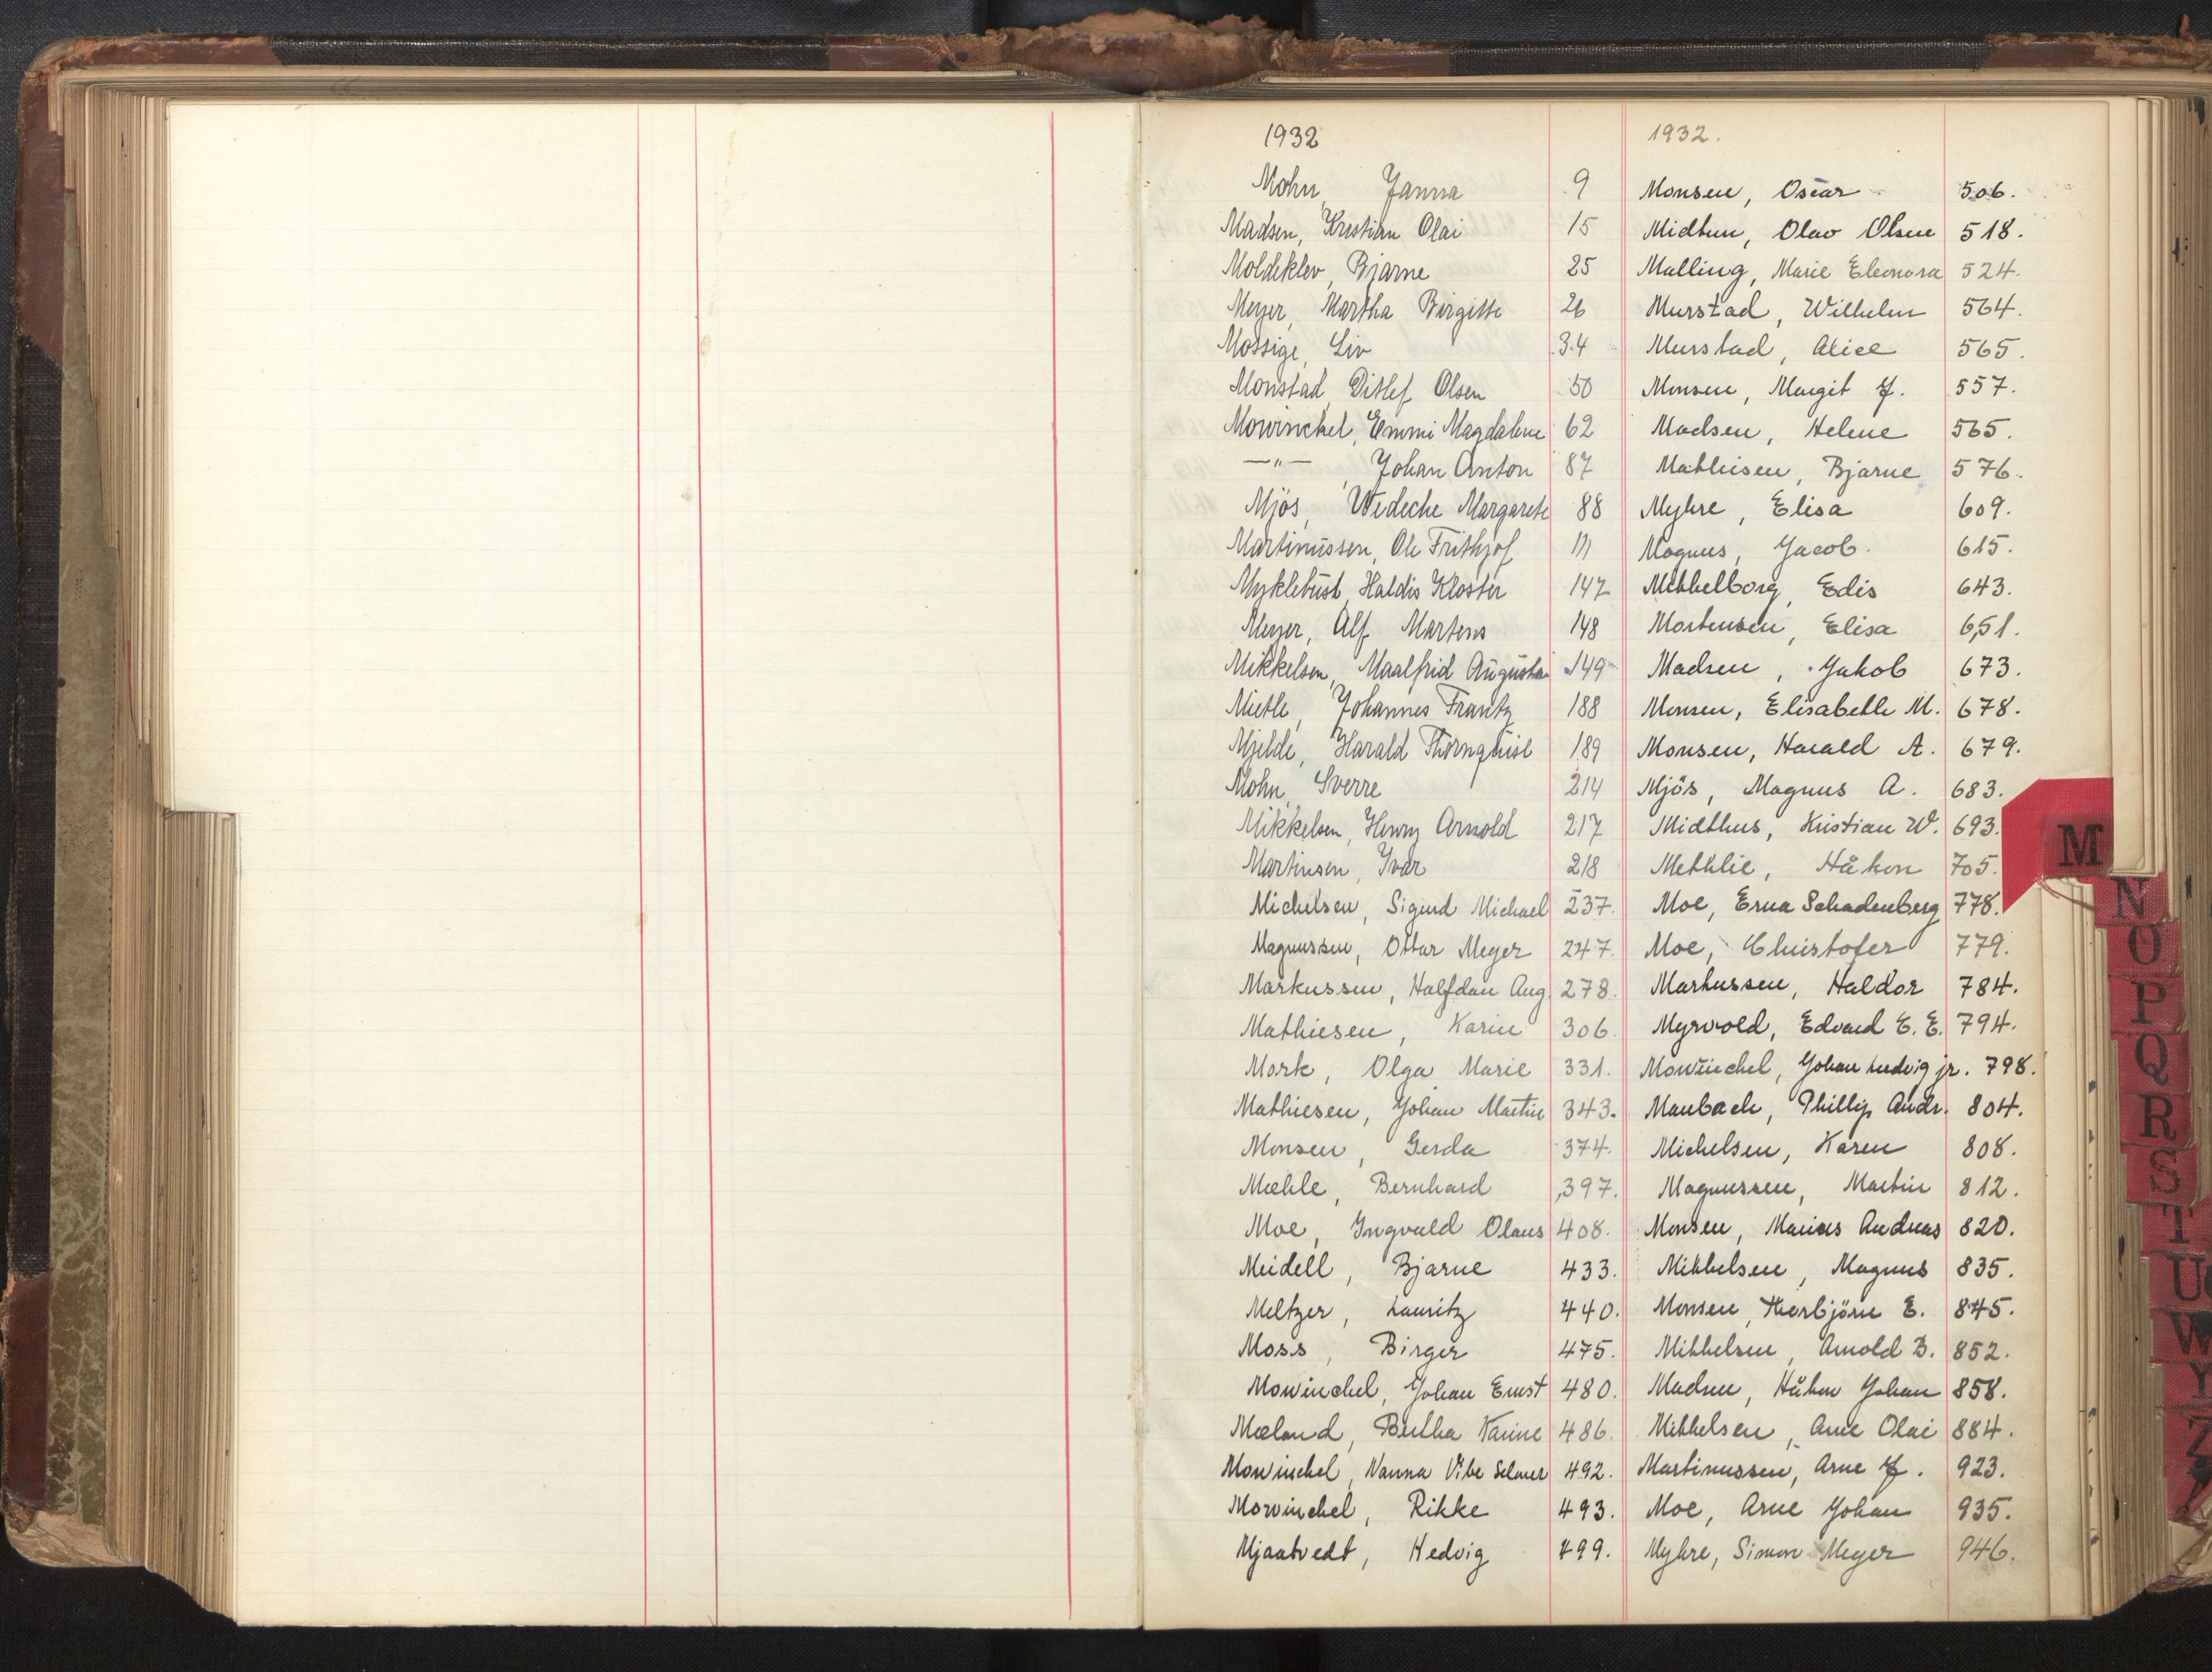 1932
Mohn, Janna 9
Madsen, Kristian Olai 15
Moldeklev, Bjarne 25
Meyer, Martha Birgitte 26
Mossige, Liv 34
Monstad, Ditlef Olsen 50
Mowinckel, Emmi Magdalene 62
—"— , Johan Anton 87
Mjös, Wedeche Margarete 88
Martinussen, Ole Frithjof 111
Myklebust, Haldis Kloster 147
Meyer, Alf Martens 148
Mikkelsen, Maalfrid Augusta 149
Mietle, Johannes Frantz 188
Mjelde, Harald Thornquist 189
Mohn, Sverre 214
Mikkelsen, Henry Arnold 217
Martinsen, Ivar 218
Michelsen, Sigurd Michael 237.
Magnussen, Ottar Meyer 247.
Markussen, Halfdan Aug. 278.
Mathiesen, Karin 306.
Mork, Olga Marie 331.
Mathiesen, Johan Martin 343.
Monsen, Gerda 374.
Mæhle, Bernhard 397.
Moe, Ingvald Olaus 408.
Meidell, Bjarne 433.
Meltzer, Lauritz 440.
Moss, Birger 475.
Mowinckel, Johan Ernst 480.
Mæland, Bertha Karine 486.
Mowinckel, Nanna Vibe Selmer 492.
Mowinckel, Rikke 493.
Mjaatvedt, Hedvig 499.
1932.
Monsen, Oscar 506.
Midtun, Olav Olsen 518.
Malling, Marie Eleonora 524.
Murstad, Wilhelm 564.
Murstad, Alice 565.
Monsen, Margit J. 557.
Madsen, Helene 565.
Mathisen, Bjarne 576.
Myhre, Elisa 609.
Magnus, Jacob. 615.
Mikkelborg, Edis 643.
Mortensen, Elisa 651.
Madsen, Jakob 673.
Monsen, Elisabeth M. 678.
Monsen, Harald A. 679.
Mjös, Magnus A. 683.
Midthus, Kristian W. 693.
Methlie, Håkon 705.
Moe, Erna Schadenberg 778.
Moe, Christofer 779.
Markussen, Haldor 784.
Myrvold, Edvard E. E. 794.
Mowinckel, Johan Ludvig jr. 798.
Maubach, Phillip Andr. 804.
Michelsen, Karen 808.
Magnussen, Martin 812.
Monsen, Marius Andreas 820.
Mikkelsen, Magnus 835.
Monsen, Thorbjörn E. 845.
Mikkelsen, Arnold B. 852.
Madsen, Håkon Johan 858.
Mikkelsen, Arne Olai 884.
Martinussen, Arne J. 923.
Moe, Arne Johan 935.
Myhre, Simon Meyer 946.
M
N
O
P
Q
R
S
T
U
W
Y
Z